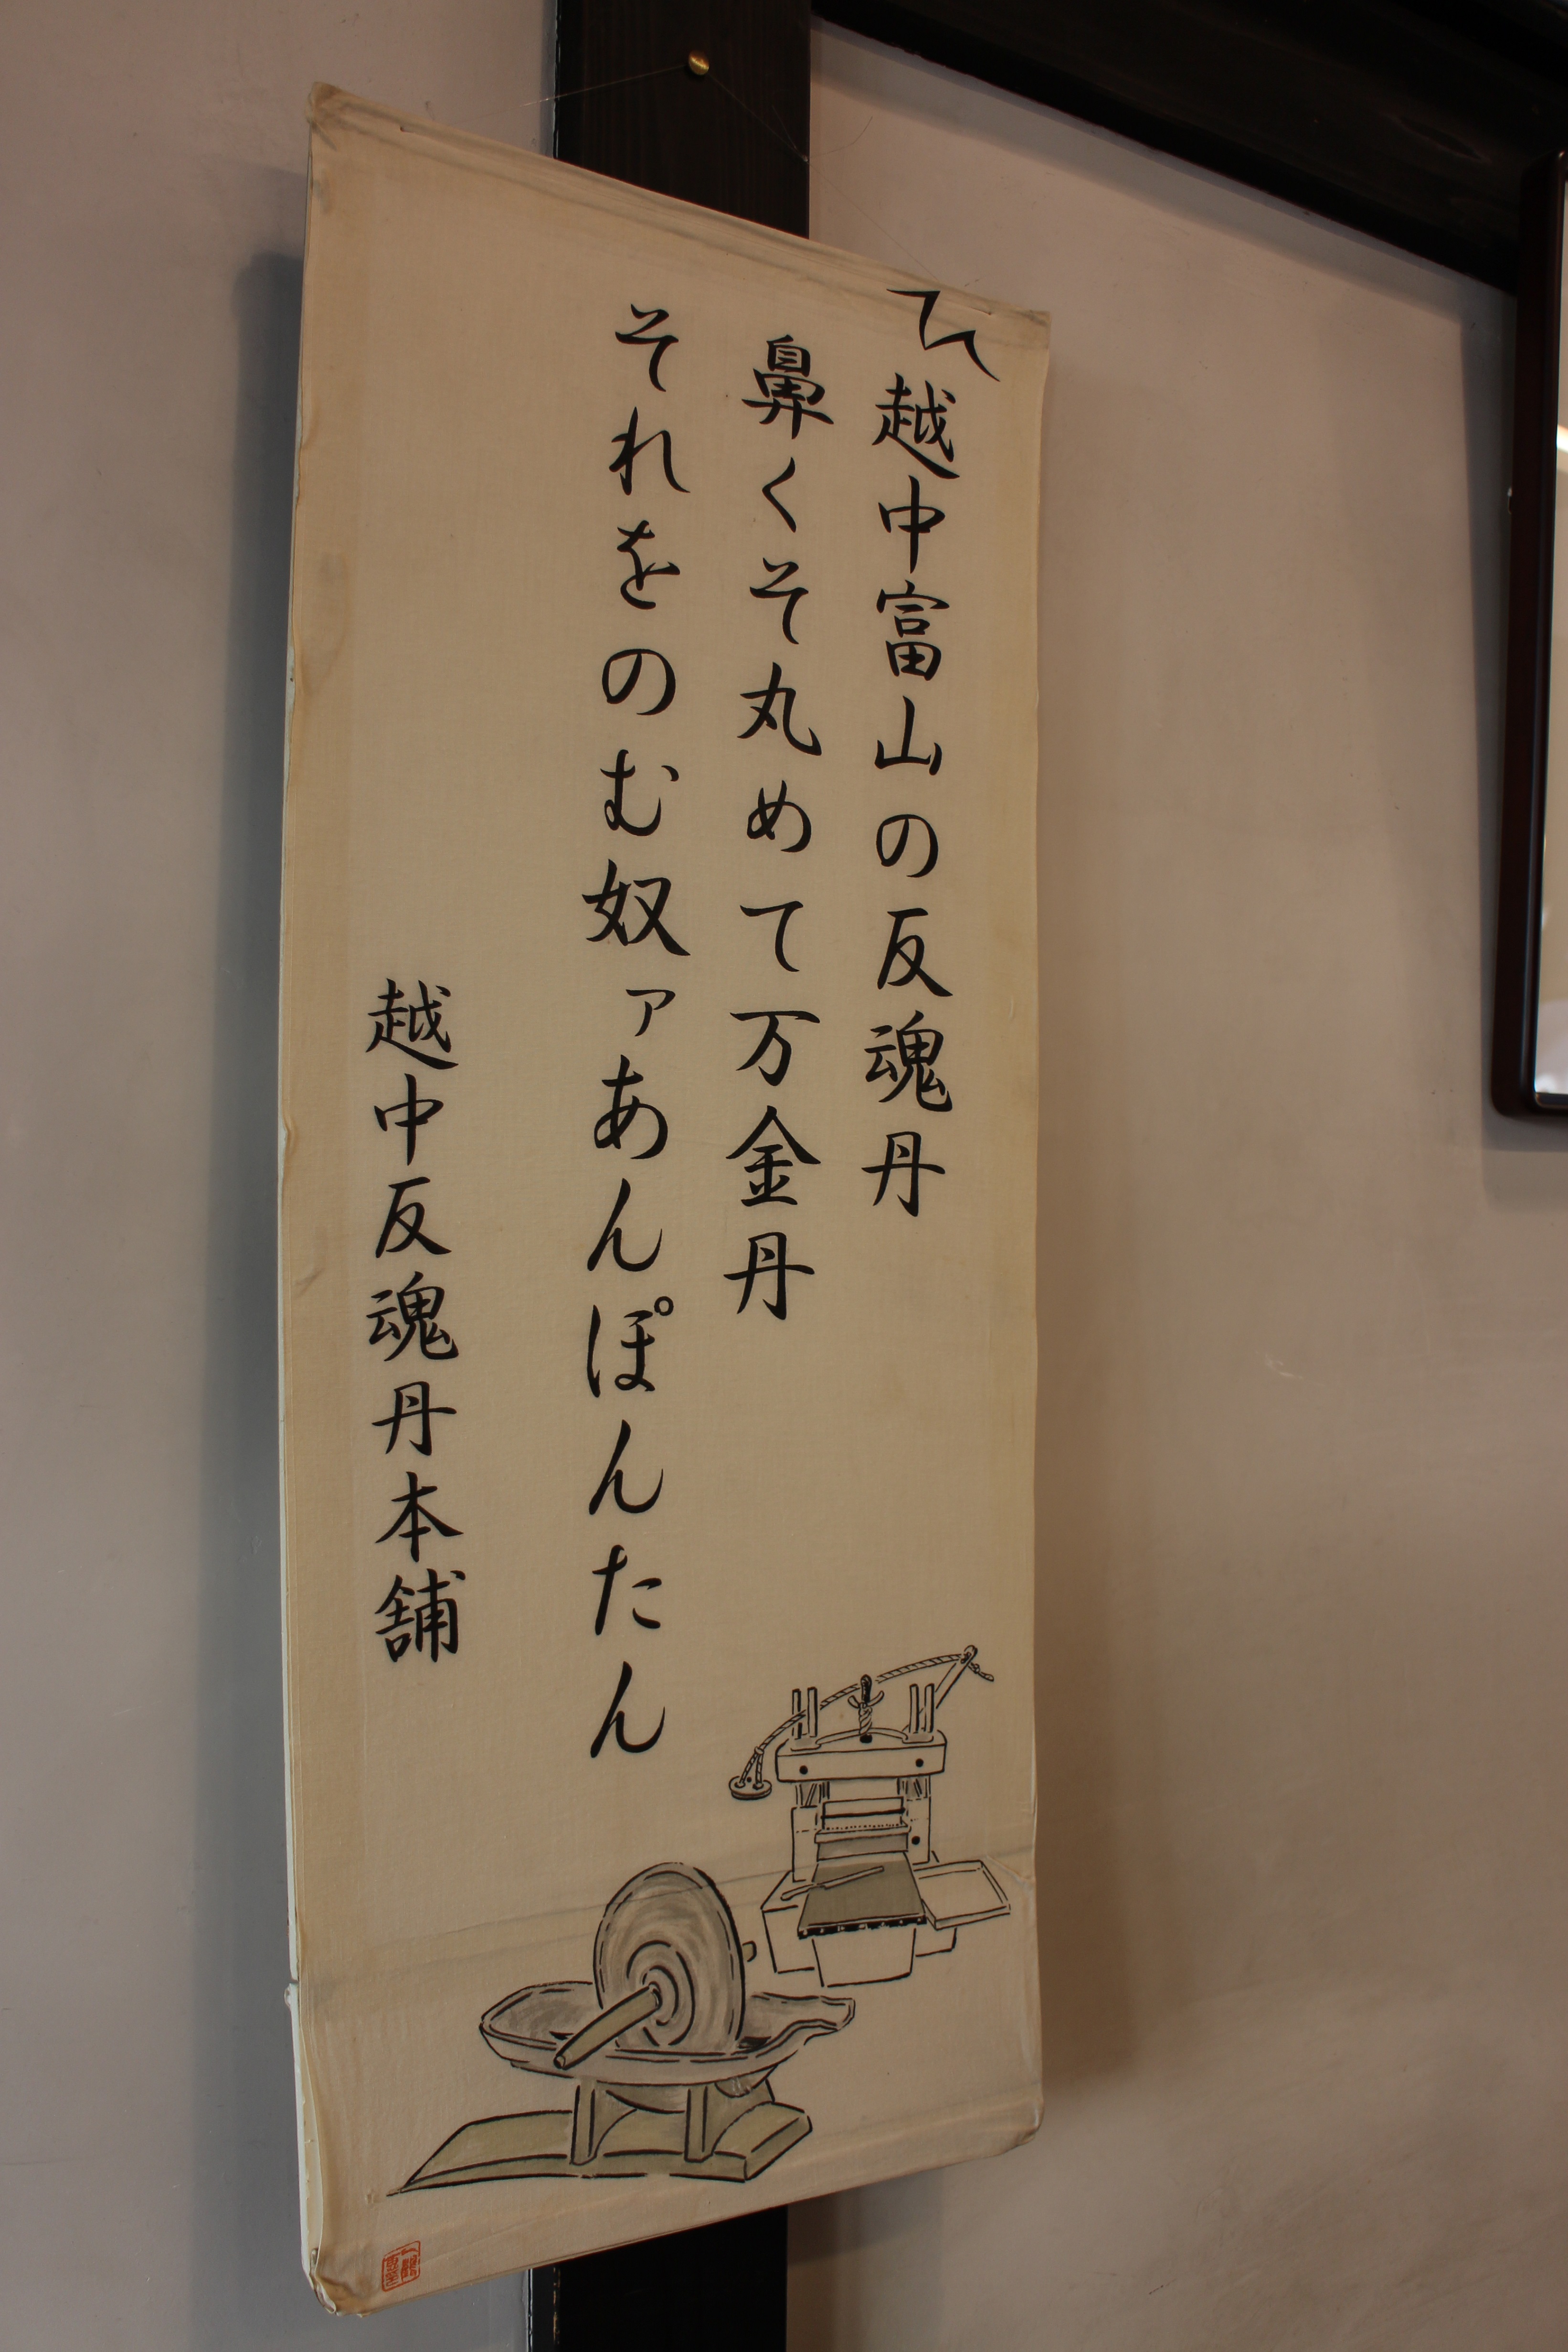 〽越中富山の反魂丹
鼻くそ丸めて万金丹
それをのむ奴ァあんぽんたん
越中反魂丹本舗